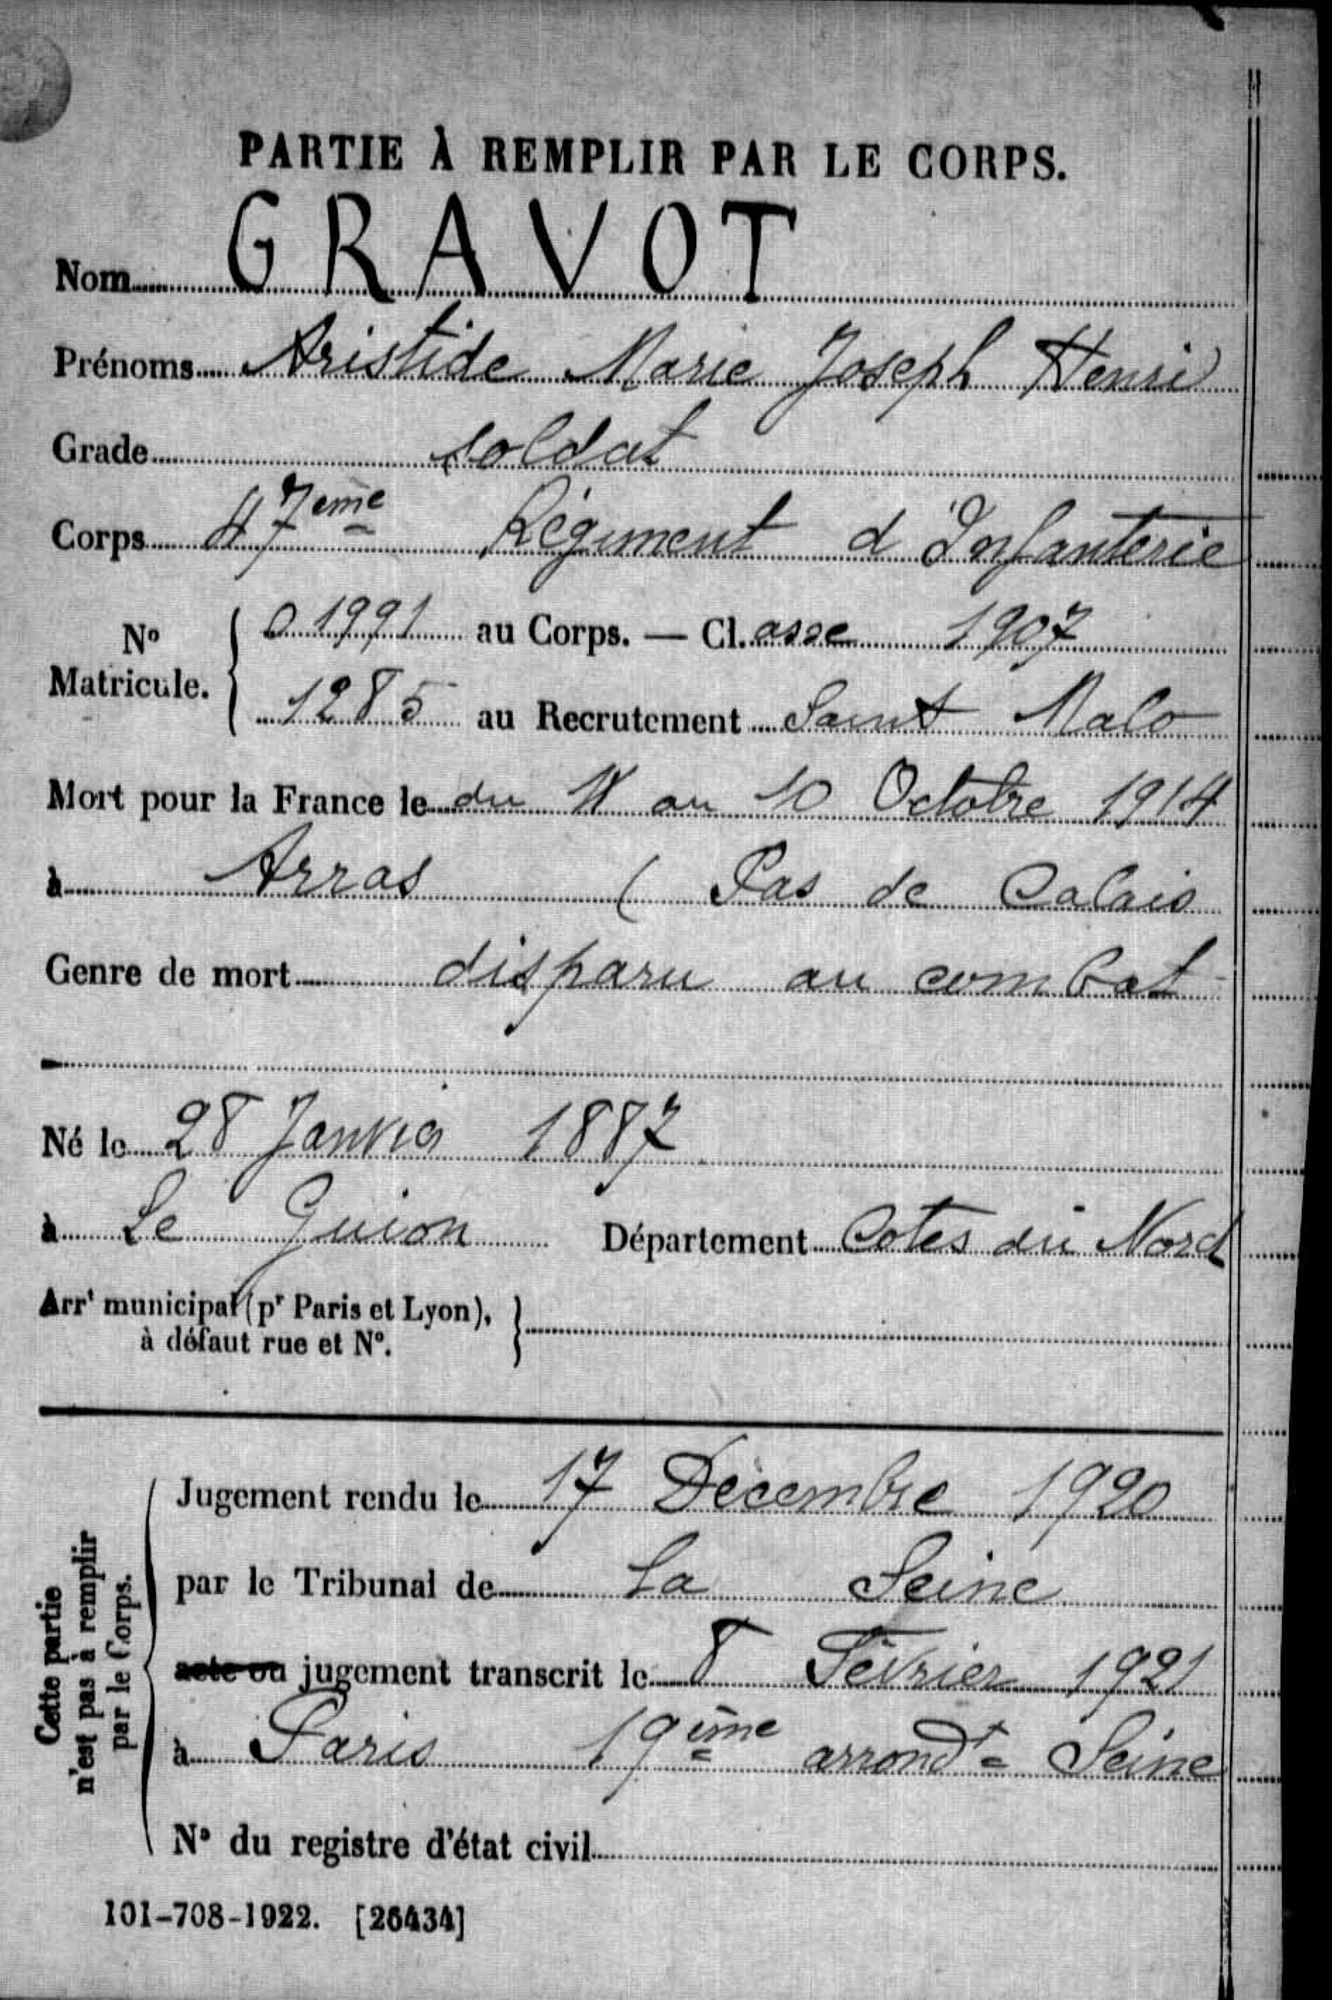 PARTIE À REMPLIR PAR LE CORPS.
Nom GRAVOT
Prénoms Aristide Marie Joseph Henri
Grade soldat
Corps 47ème Régiment d'Infanterie
No Matricule. 01991 au Corps. — Cl.asse 1907
1285 au Recrutement Saint Malo
Mort pour la France le du au 10 Octobre 1914
à Arras ( Pas de Calais
Genre de mort disparu au combat
Né le 28 Janvier 1887
à Le Guion Département Cotes du Nord
Arrt municipal (pr Paris et Lyon),
à défaut rue et No.
Cette partie
n'est pas à remplir
par le Corps.
Jugement rendu le 17 Décembre 1920
par le Tribunal de La Seine
acte ou jugement transcrit le 8 Février 1921
à Paris 19ème arrondt = Seine
No du registre d'état civil
101-708-1922. [26434]